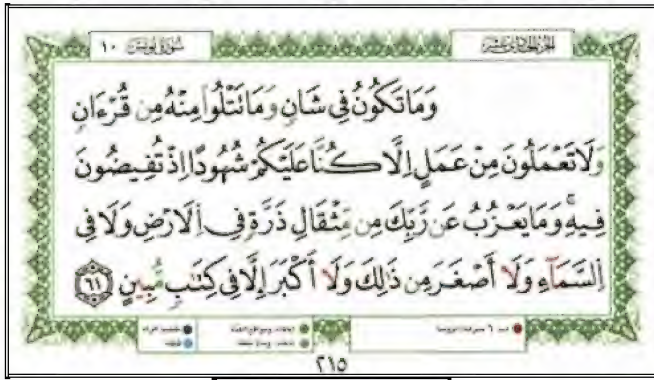 سُورَةُ يُونُسَ ١٠ الجُزْءُ الحَادِي عَشَرَ
وَمَا تَكُونُ فِي شَانٖ وَمَا تَتْلُوا مِنْهُ مِن قُرْءَانٖ
وَلَا تَعْمَلُونَ مِنْ عَمَلٍ اِلَّا كُنَّا عَلَيْكُمْ شُهُودًا اِذْ تُفِيضُونَ
فِيهِۚ وَمَا يَعْزُبُ عَن رَّبِّكَ مِن مِّثْقَالِ ذَرَّةٖ فِي اِلَارْضِ وَلَا فِي
اِلسَّمَآءِ وَلَا أَصْغَرَ مِن ذَٰلِكَ وَلَا أَكْبَرَ اِلَّا فِي كِتَٰبٖ مُّبِينٍ ٦١
٢١٥